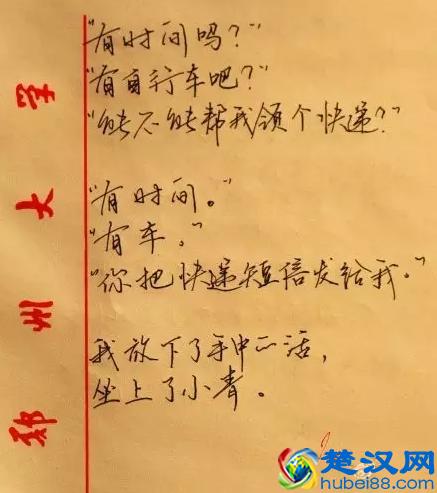 "有时间吗？"
"有自行车吧？"
"能不能帮我领个快递？"
"有时间。"
"有车。"
"你把快递短信发给我。"
我放下了手中的活，
坐上了小青。
郑州大学
楚汉网
hubei88.com